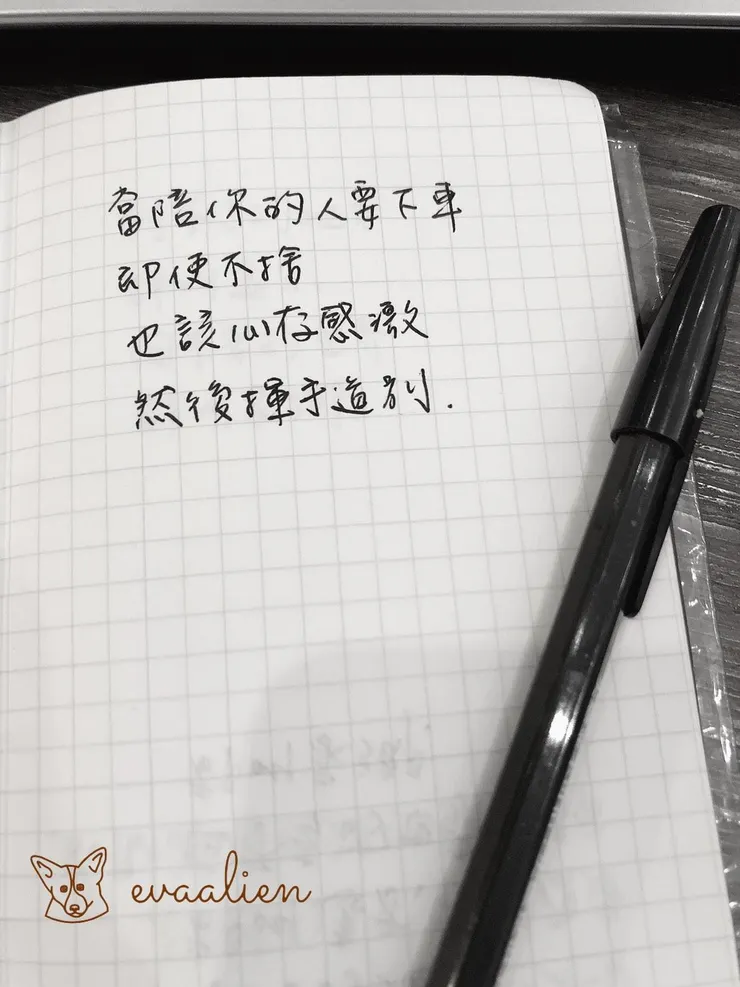 當陪你的人要下車
即便不捨
也該心存感激
然後揮手道別.
evaalien